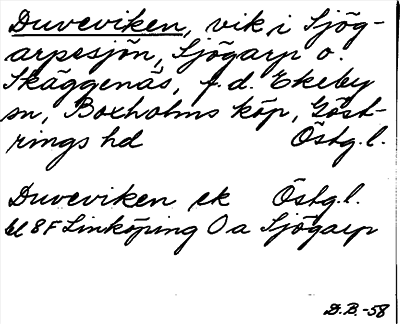 Duveviken, vik i Sjög-
arpesjön, Sjögarp o.
Skäggenäs, f.d. Ekeby
sn, Boxholms köp, Göst-
rings hd Östg.l.
Duveviken ek Östg.l.
bl 8F Linköping Oa Sjögarp
D.B.-58